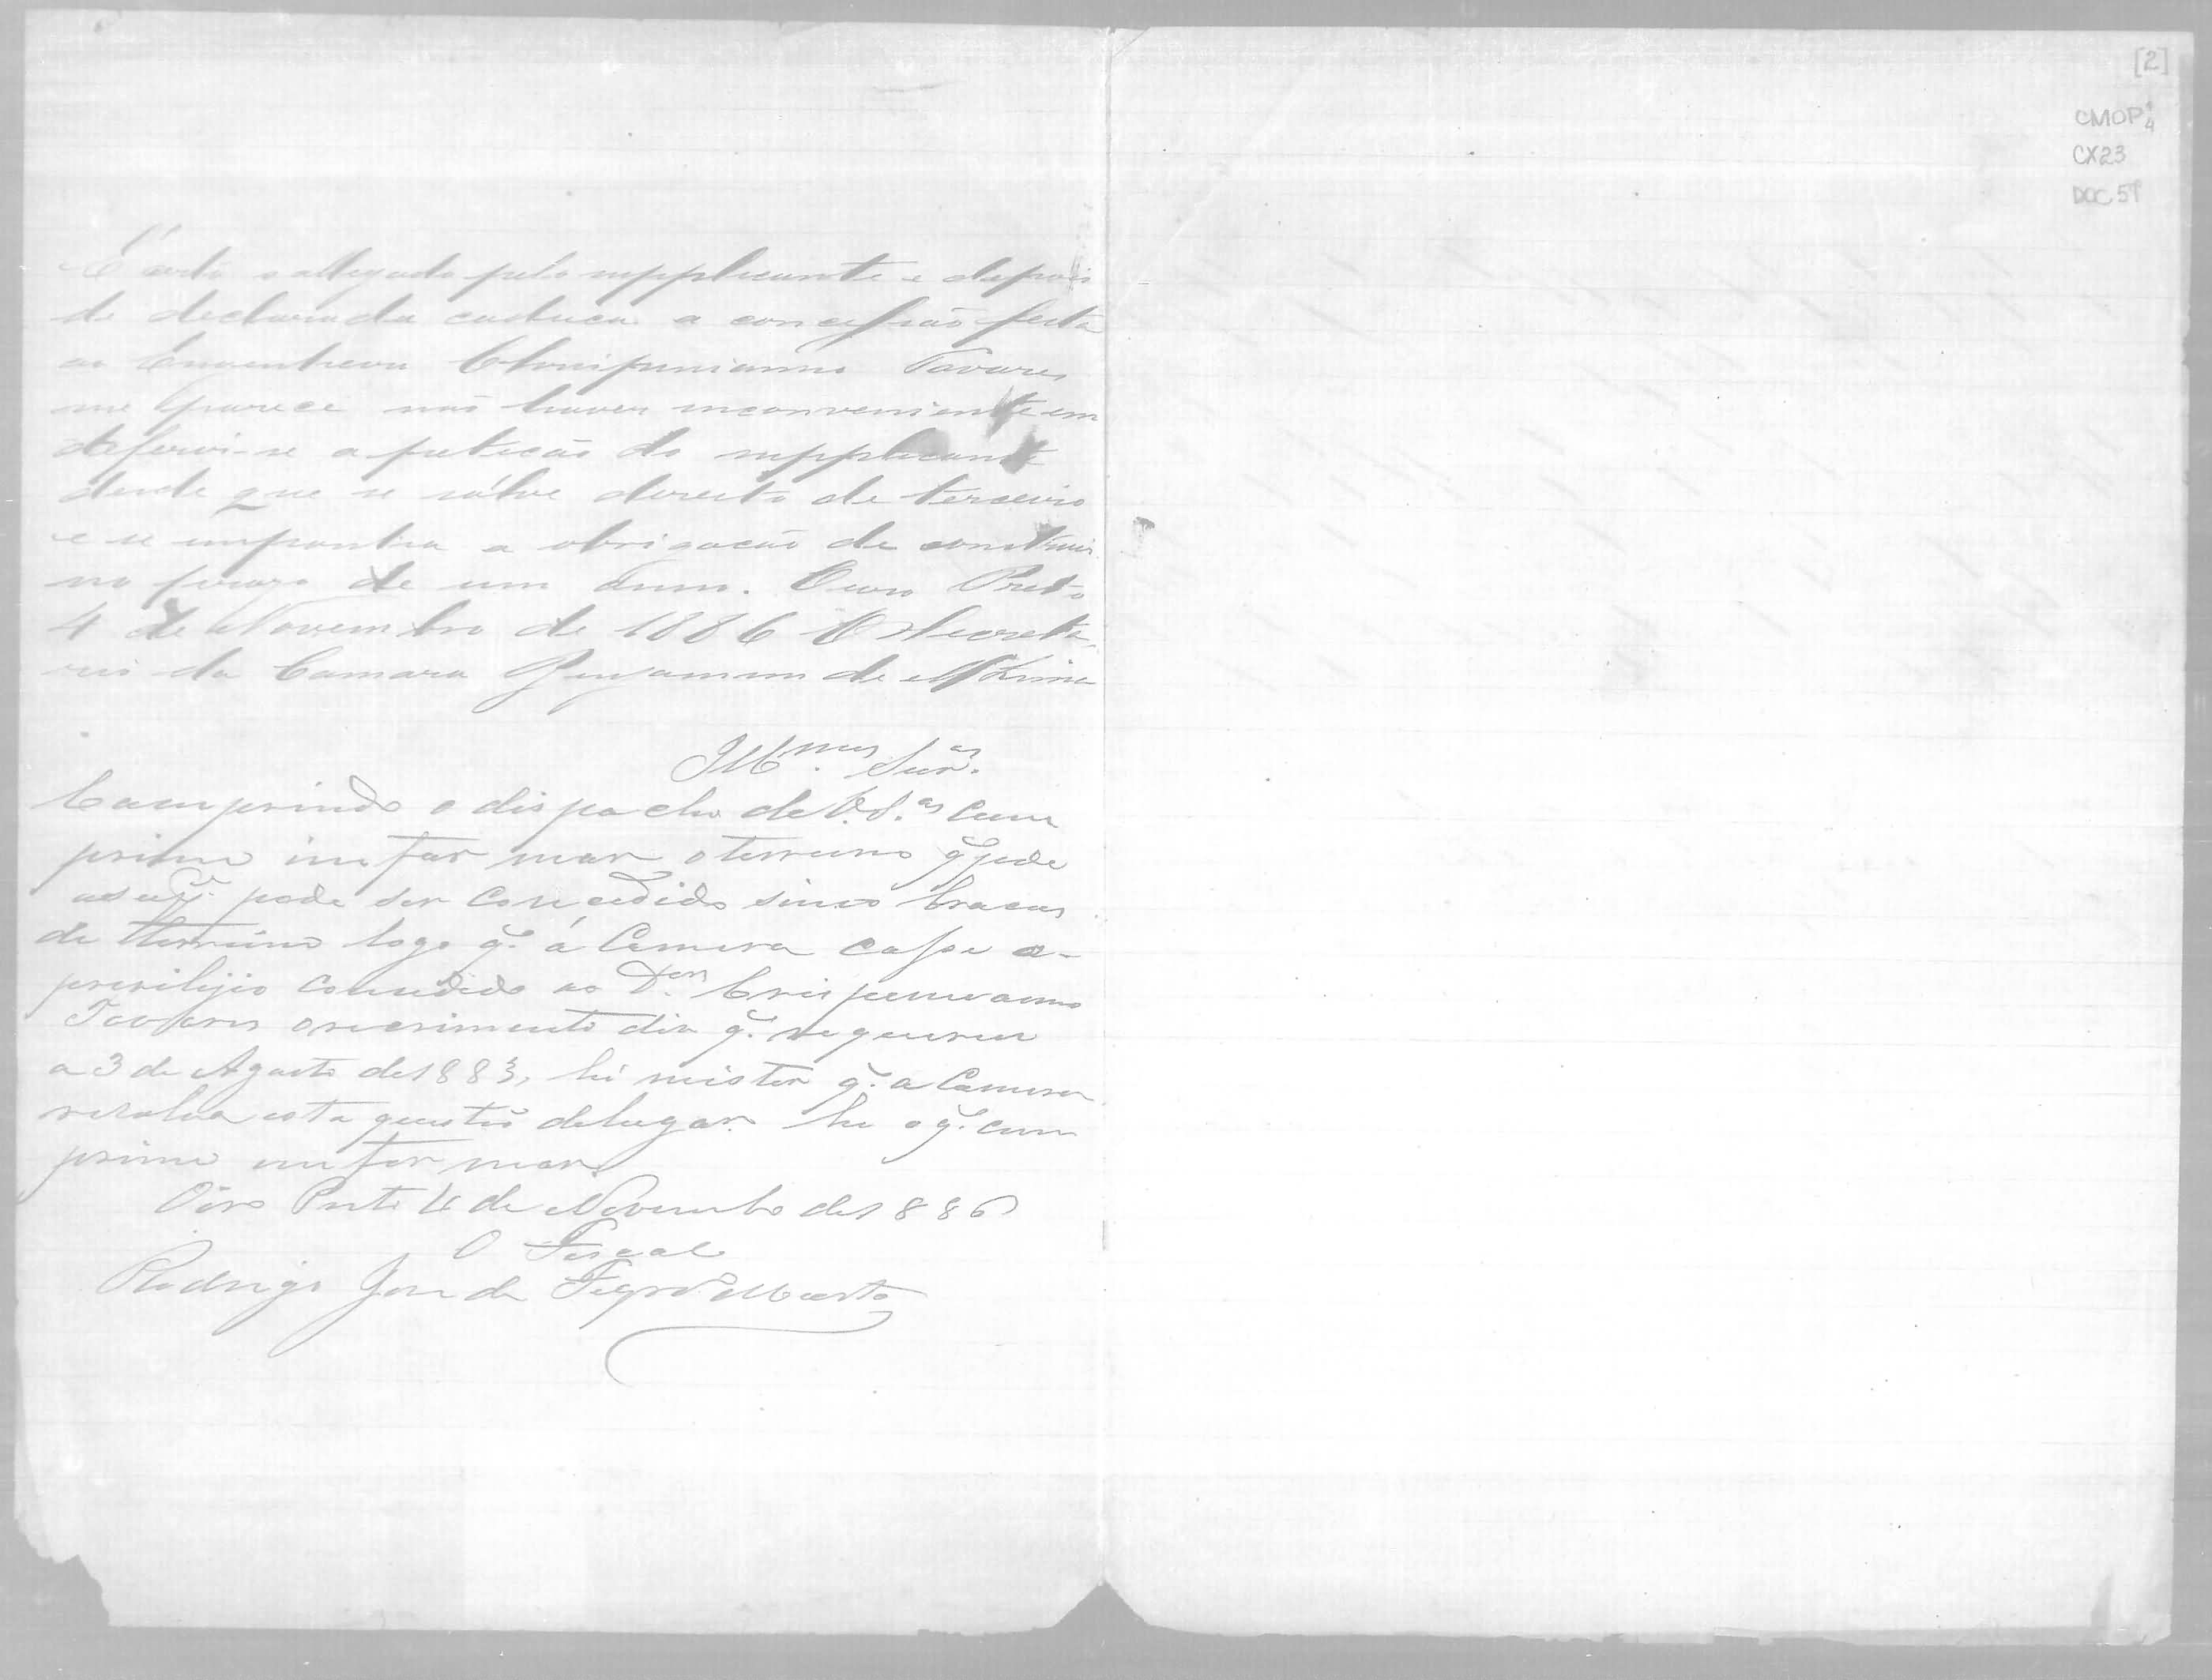 [2]
CMOP
CX23
DOC 57
É certo o allegado pelo supplicante e depois
de declarada caduca a concessão feita
ao Engenheiro Chrispiniano Tavares
me parece não haver inconveniente em
deferir-se a petição do supplicante
desde que se sálve direito de terceiro
e se imponha a obrigação de construir
no praso de um anno. Ouro Preto
4 de Novembro de 1886 O Secreta
rio da Camara Benjamim de Lima
Illmos. Snrs.
Comprindo o dispacho de V.Sas Cum
prime imformar o terreno q. pede
pode ser Concedido sinco bracas
de terreno logo q. á Camera casse o
previlijio Concedido ao Dor. Crispiniano
Tavares o requerimento diz q. requereu
a 3 de Agosto de 1883, hé mister q. a Camera
resolva esta questão de lugar. he o q. cum
prime imformar.
Oiro Preto 4 de Novembro de 1886
O Fiscal
Rodrigo José de Figdo Murta